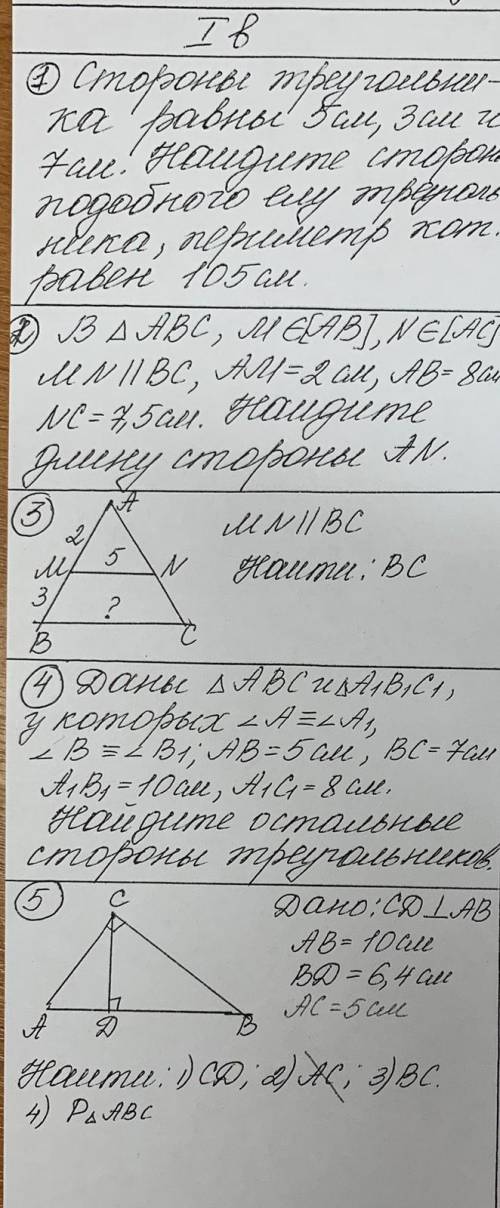 I в
① Стороны треугольни-
ка равны 5см, 3см и
7см. Найдите сторон
подобного ему треуголь
ника, периметр кот.
равен 105см.
② В △ABC, M∈[AB], N∈[AC]
MN||BC, AM=2см, AB=8см
NC=7,5см. Найдите
длину стороны AN.
③ A
2
MN||BC
M 5 N
Найти: BC
3 ?
B C
④ Даны △ABC и △A₁B₁C₁,
у которых ∠A≡∠A₁,
∠B≡∠B₁; AB=5см, BC=7см
A₁B₁=10см, A₁C₁=8см.
Найдите остальные
стороны треугольников.
⑤ C
Дано: CD⊥AB
AB=10см
BD=6,4см
AC=5см
A D B
Найти: 1) CD; 2) AC; 3) BC.
4) P△ABC